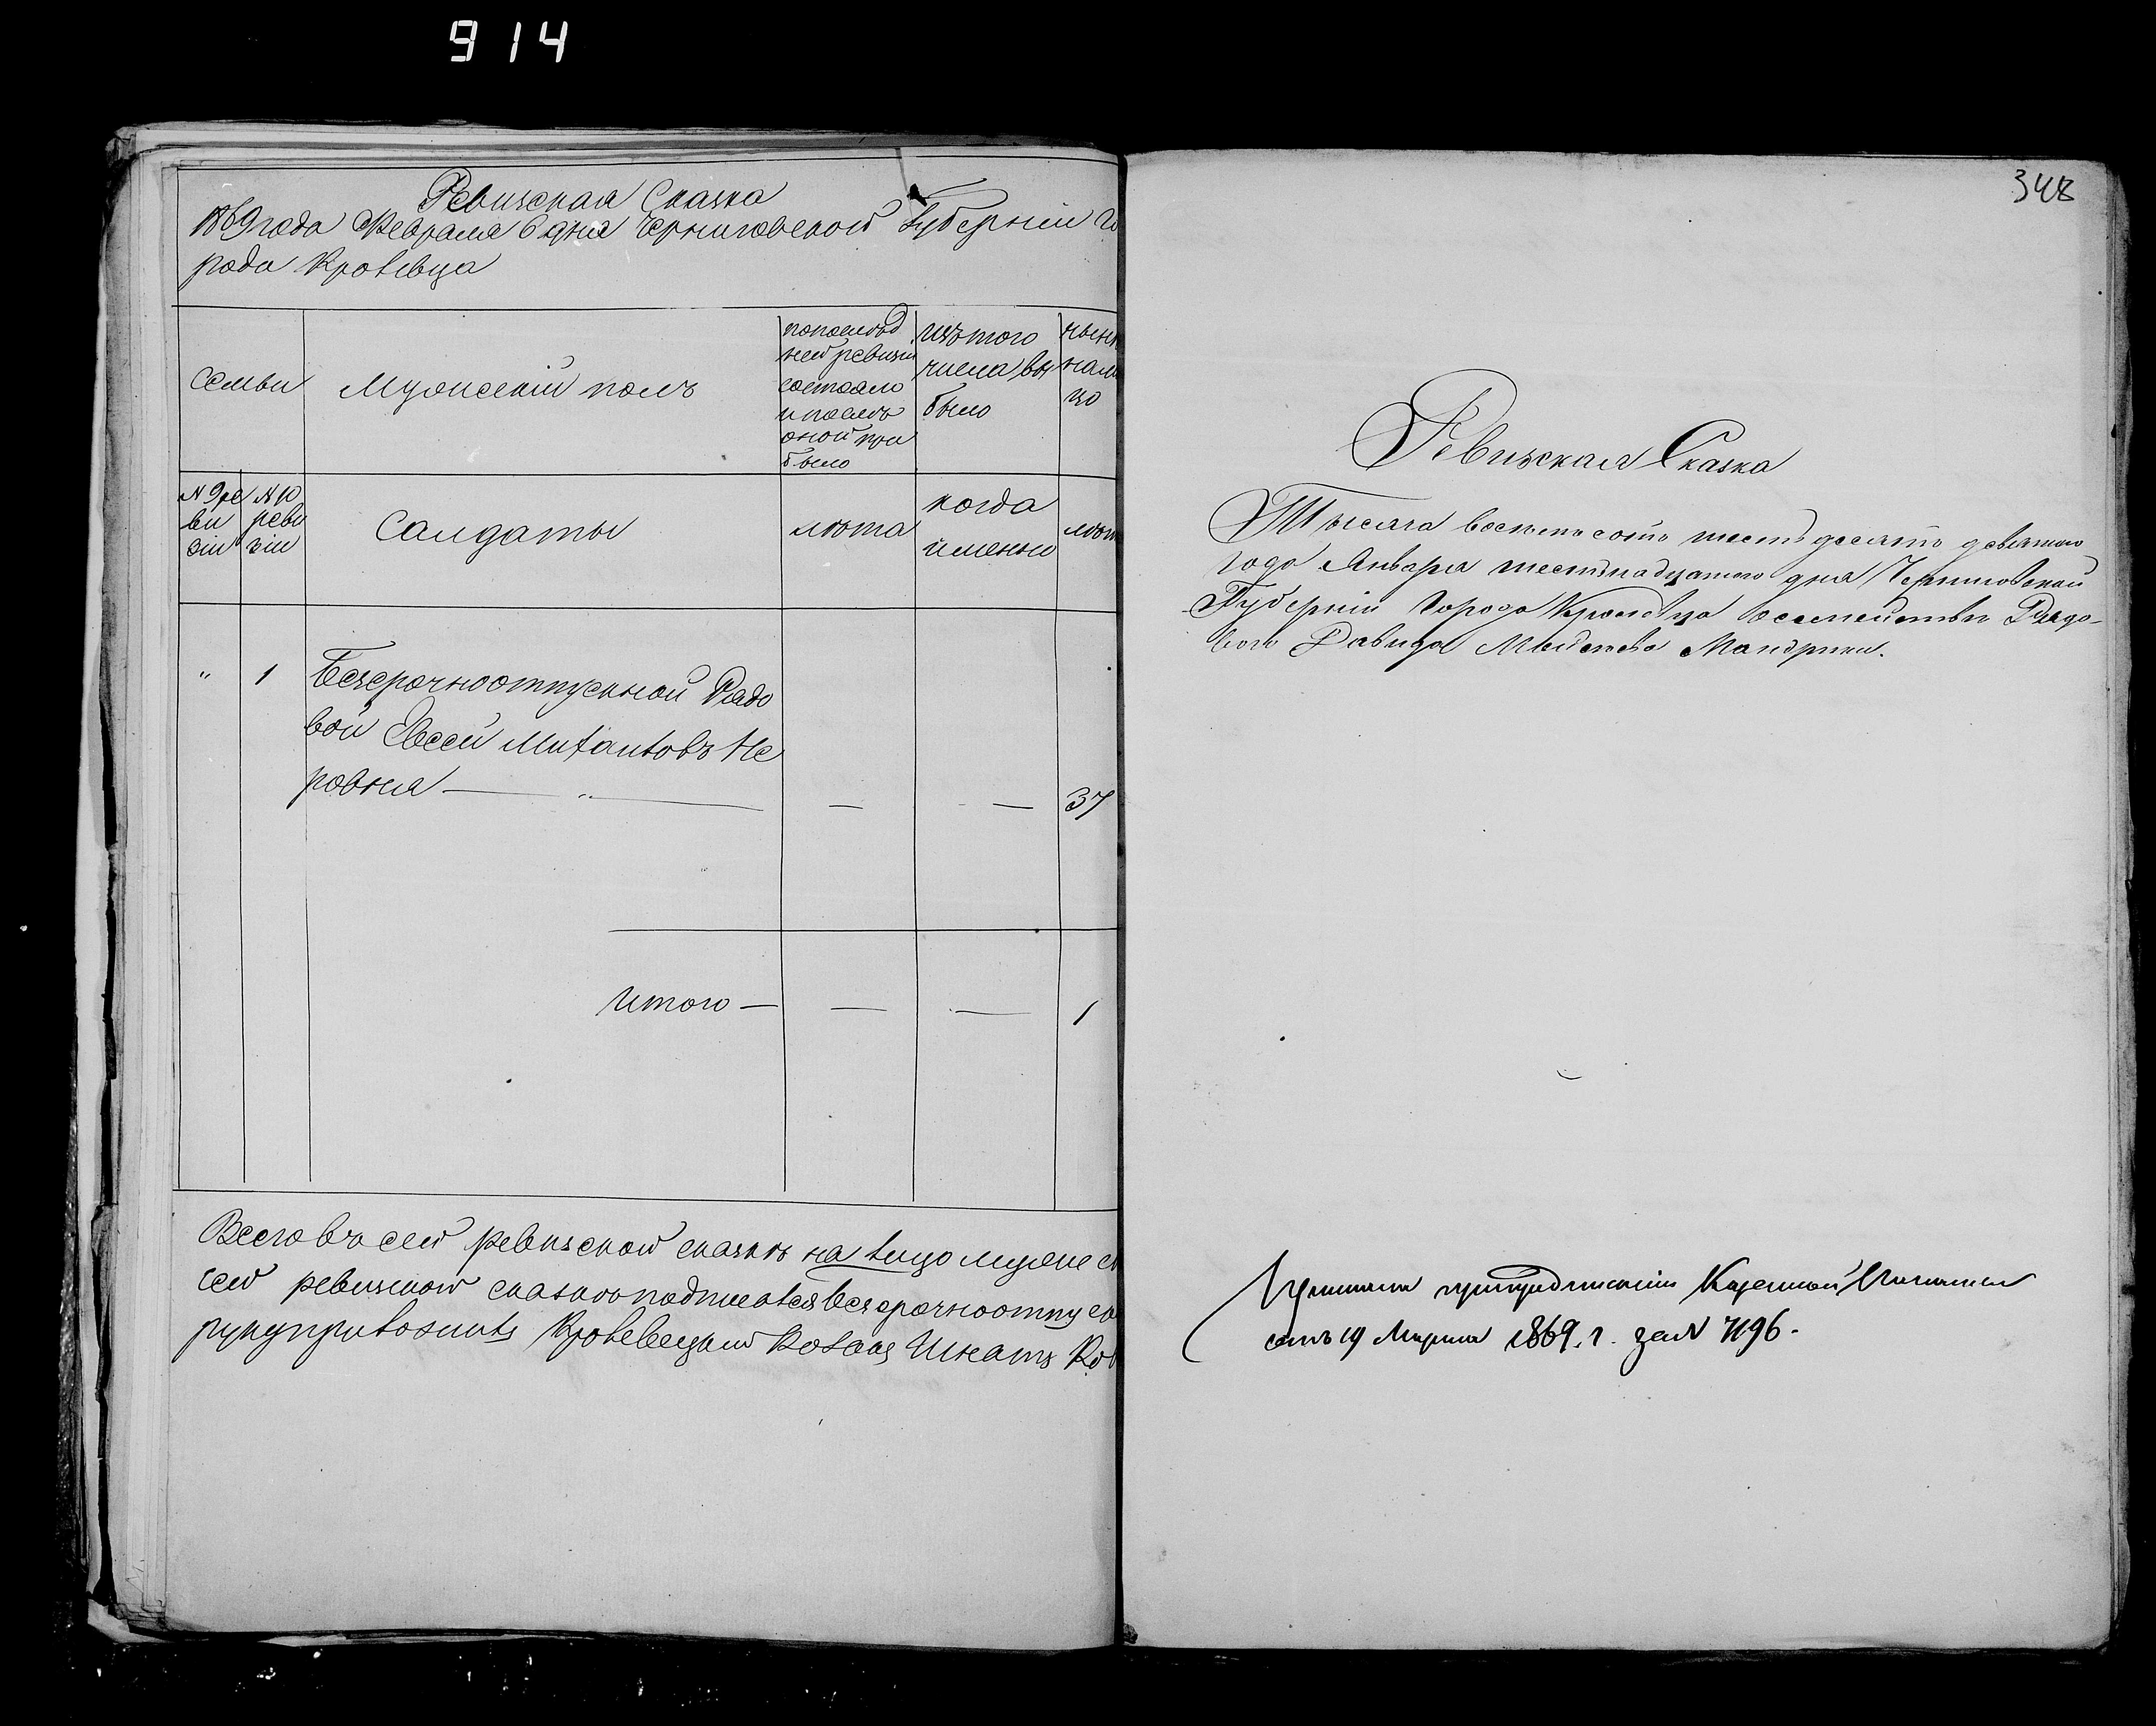 914
Ревизская Сказка
1869 года Февраля 6 дня Черниговской Губернiи Го
рода Кролевца
Семьи
Мужескiй полъ
попослѣд
ней ревизiи
состояло
и послѣ
оной при
было
изътого
числа вы
было
нынѣ
нали
цо
N 9 ре
ви
зiи
N 10
реви
зiи
Салдаты
лѣта
когда
именно
лѣт
" 1 Безсрочноотпускной Рядо
вой Евсей Михайловъ Не
ровня — " — — — 37
Итого — — — 1
Всего въ сей ревизской сказкѣ на лицо мужеска
сей ревизской сказкѣ подписался безсрочноотпуск
руку приложилъ Кролевецкий Козакъ Игнатъ Ко
348
Ревизская Сказка
Тысяча восемьсотъ шестьдесятъ девятого
года Января шестьнадцатого дня Черниговской
Губернiи Города Кролевца осемействѣ Рядо-
вого Давида Мойсеева Мандрики.
Принята при предписанiи Казенной Палаты
отъ 19 Марта 1869. г. за N 7196.